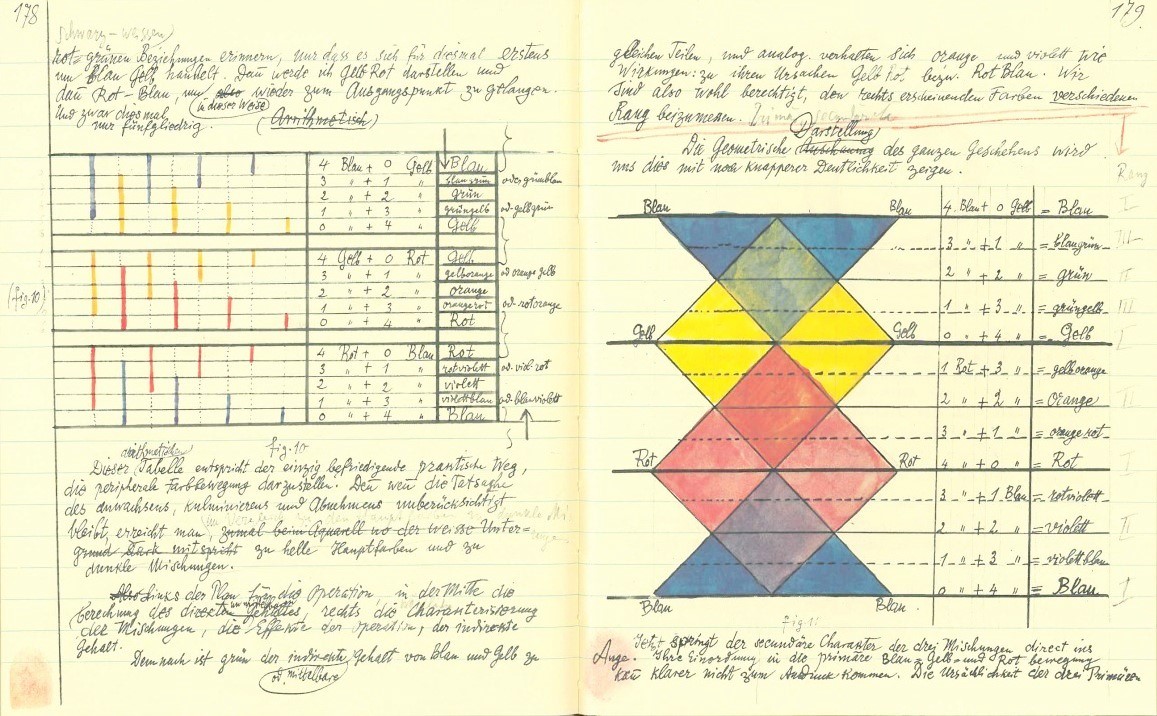 178
schwarz-weissen
rot-grünen Beziehungen erinnern, nur dass es sich für diesmal erstens
um Blau Gelb handelt. Dann werde ich Gelb Rot darstellen und
dann Rot-Blau, um also wieder zum Ausgangspunkt zu gelangen.
Und zwar diesmal in dieser Weise
nur fünfgliedrig. (Arithmetisch)
4 Blau + 0 Gelb Blau
3 " + 1 " blaugrün od. grünblau
2 " + 2 " grün
1 " + 3 " grüngelb od. gelbgrün
0 " + 4 " Gelb
4 Gelb + 0 Rot Gelb
3 " + 1 " gelborange od orangegelb
2 " + 2 " orange
1 " + 3 " orangerot od. rotorange
0 " + 4 " Rot
4 Rot + 0 Blau Rot
3 " + 1 " rotviolett od. viol-rot
2 " + 2 " violett
1 " + 3 " violettblau od. blauviolett
0 " + 4 " Blau
(fig. 10)
fig. 10
arithmetische
Dieser Tabelle entspricht der einzig befriedigende praktische Weg,
die peripherale Farbbewegung darzustellen. Denn wenn die Tatsache
des anwachsens, kulminierens und Abnehmens unberücksichtigt
bleibt, erreicht man, zumal beim Aquarell wo der weisse Unter-
grund stark mitspricht zu helle Hauptfarben und zu
dunkle Mischungen.
Also links der Plan für die Operation, in der Mitte die
berechnung des direkten Gehaltes, rechts die Charakterisierung
der Mischungen, die Effekte der Operation, der indirekte
Gehalt.
Demnach ist grün der indirekte Gehalt von Blau und Gelb zu
od. mittelbare
179.
gleichen Teilen, und analog. verhalten sich orange und violett wie
Wirkungen: zu ihren Ursachen Gelb Rot bezw. Rot Blau. Wir
sind also wohl berechtigt, den rechts erscheinenden Farben verschiedenen
Rang beizumessen.
Rang
Darstellung
Die Geometrische des ganzen Geschehens wird
uns dies mit noch knapperer Deutlichkeit zeigen.
Blau Blau 4 Blau + 0 Gelb = Blau I
3 " + 1 " = blaugrün III
2 " + 2 " = grün II
1 " + 3 " = grüngelb III
Gelb Gelb 0 " + 4 " = Gelb I
1 Rot + 3 " = gelborange
2 " + 2 " = Orange II
3 " + 1 " = orangerot
Rot Rot 4 " + 0 " = Rot I
3 " + 1 Blau = rotviolett
2 " + 2 " = violett II
1 " + 3 " = violettblau
0 " + 4 " = Blau I
Blau Blau.
fig 11
Jetzt springt der secundäre Charakter der drei Mischungen direct ins
Auge. Ihre Einordnung in die primäre Blau-Gelb- und Rot bewegung
kann klarer nicht zum Ausdruck kommen. Die Ursächlichkeit der drei Primären